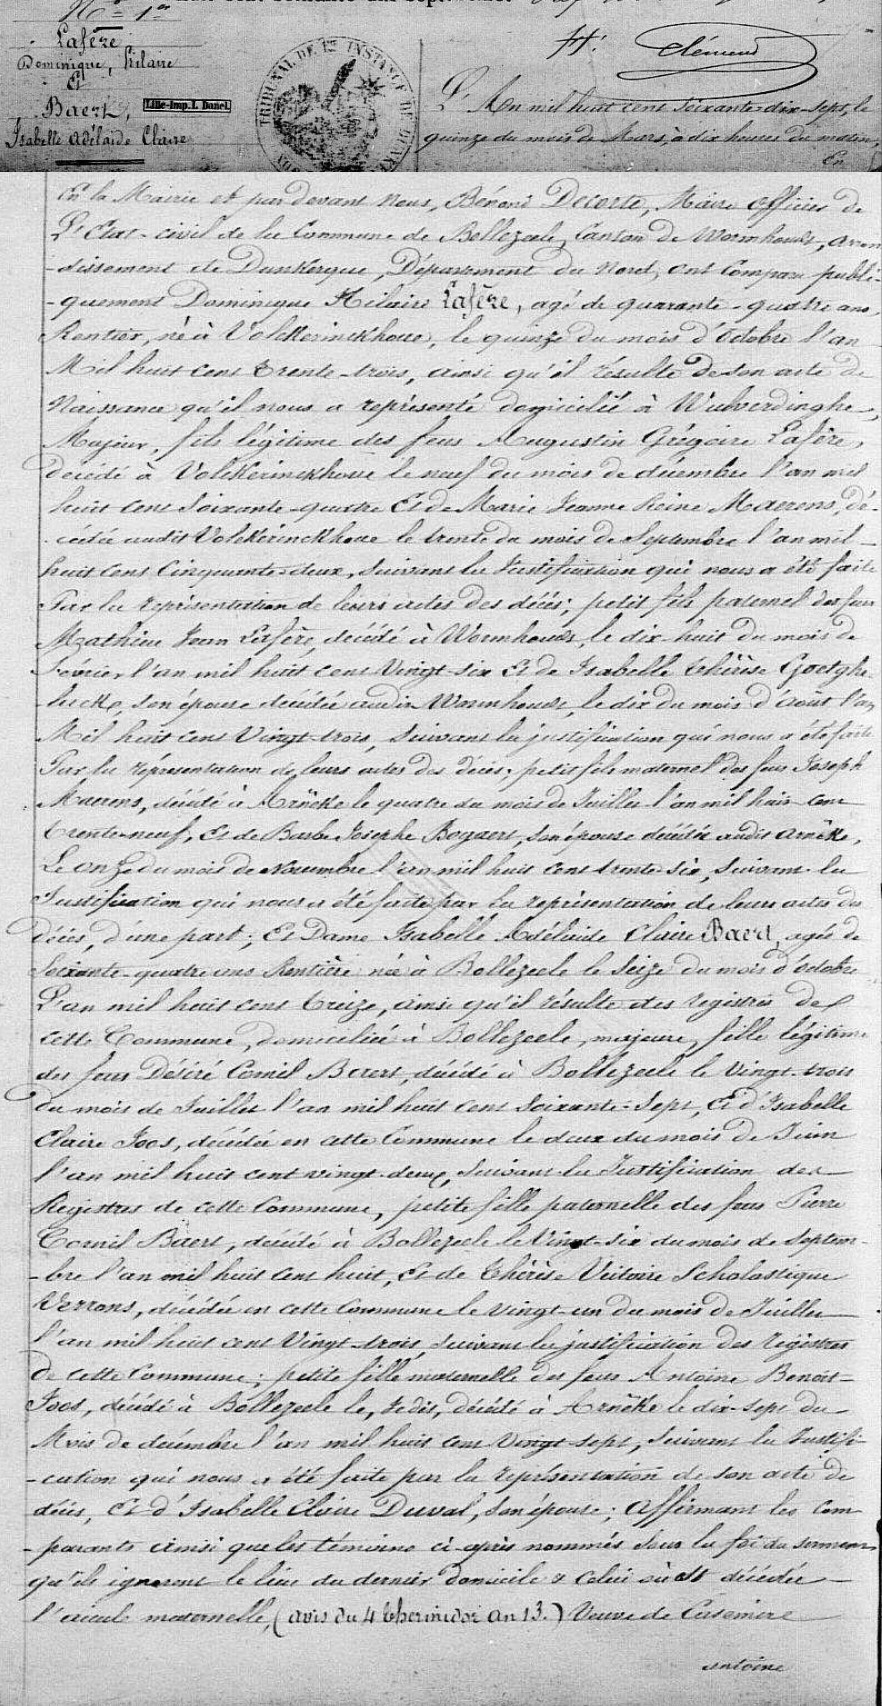 N° 1er
Lafère
Dominique, Hilaire
Et
Baert,
Isabelle Adélaïde Claire
Lille-Imp. L. Danel.
TRIBUNAL DE 1re INSTANCE DE DUNKER
H. Clément
L'An mil huit cent soixante-dix-sept, le
quinze du mois de Mars, à dix heures du matin,
En
En la Mairie et par devant Nous, Decorte, Maire officier de
L'Etat-civil de la Commune de Bollezeele, Canton de Wormhoudt, arron
-dissement de Dunkerque, Département du Nord, ont comparu publi-
-quement Dominique Hilaire Lafère, agé de quarante-quatre ans,
Rentier, né à Volckerinckhove, le quinze du mois d'Octobre l'an
Mil huit cent trente-trois, ainsi qu'il résulte de son acte de
Naissance qu'il nous a représenté domicilié à Wulverdinghe,
Majeur, fils légitime des feus Augustin Grégoire Lafère,
décédé à Volckerinckhove le neuf du mois de décembre l'an mil
huit cent soixante-quatre Et de Marie Jeanne Reine Maerens, dé-
-cédée audit Volckerinckhove le trente du mois de Septembre l'an mil
huit cent Cinquante-deux, suivant la Justification qui nous a été faite
Par la représentation de leurs actes des décès; petit fils paternel des feus
Mathieu Jean Lafère, décédé à Wormhoudt, le dix-huit du mois de
Février l'an mil huit cent Vingt-six Et de Isabelle Thérèse Goetghe-
-lucke, son épouse décédée audit Wormhoudt, le dix du mois d'Août l'an
Mil huit cent Vingt-trois, suivant la justification qui nous a été faite
Par la représentation de leurs actes des décès; petit fils maternel des feus Joseph
Maerens, décédé à Arnèke le quatre du mois de Juillet l'an mil huit cent
trente-neuf, Et de Barbe Josephe Bogaert, son épouse décédée audit Arnèke,
Le onze du mois de Novembre l'an mil huit cent trente six, suivant la
Justification qui nous a été faite par la représentation de leurs actes des
décès, d'une part; Et Dame Isabelle Adélaïde Claire Baert, agée de
Soixante-quatre ans Rentière née à Bollezeele le Seize du mois d'Octobre
L'an mil huit cent treize, ainsi qu'il résulte des registres de
cette Commune, domiciliée à Bollezeele, majeure, fille légitime
des feus Désiré Cornil Baert, décédé à Bollezeele le Vingt-trois
du mois de Juillet l'an mil huit cent Soixante-Sept, Et d'Isabelle
Claire Joos, décédée en cette Commune le deux du mois de Juin
l'an mil huit cent vingt-deux, suivant la Justification des
Registres de cette Commune, petite fille paternelle des feus Pierre
Cornil Baert, décédé à Bollezeele le Vingt-six du mois de Septem-
-bre l'an mil huit cent huit, Et de Thérèse Victoire Scholastique
Verrons, décédée en cette Commune le vingt-un du mois de Juillet
l'an mil huit cent Vingt-trois, suivant la justification des registres
de cette Commune; petite fille maternelle des feus Antoine Benoit
Joos, décédé à Bollezeele le, Je dis, décédé à Arnèke le dix-sept du
Mois de décembre l'an mil huit cent Vingt-sept, suivant la Justifi-
-cation qui nous a été faite par la représentation de son acte de
décès, Et d'Isabelle Claire Duval, son épouse; affirmant les com-
-parants ainsi que les témoins ci-après nommés sous la foi du serment
qu'ils ignorent le lieu du dernier domicile & celui où est décédée
l'aieule maternelle, (avis du 4 thermidor An 13.) Veuve de Casimire
antoine